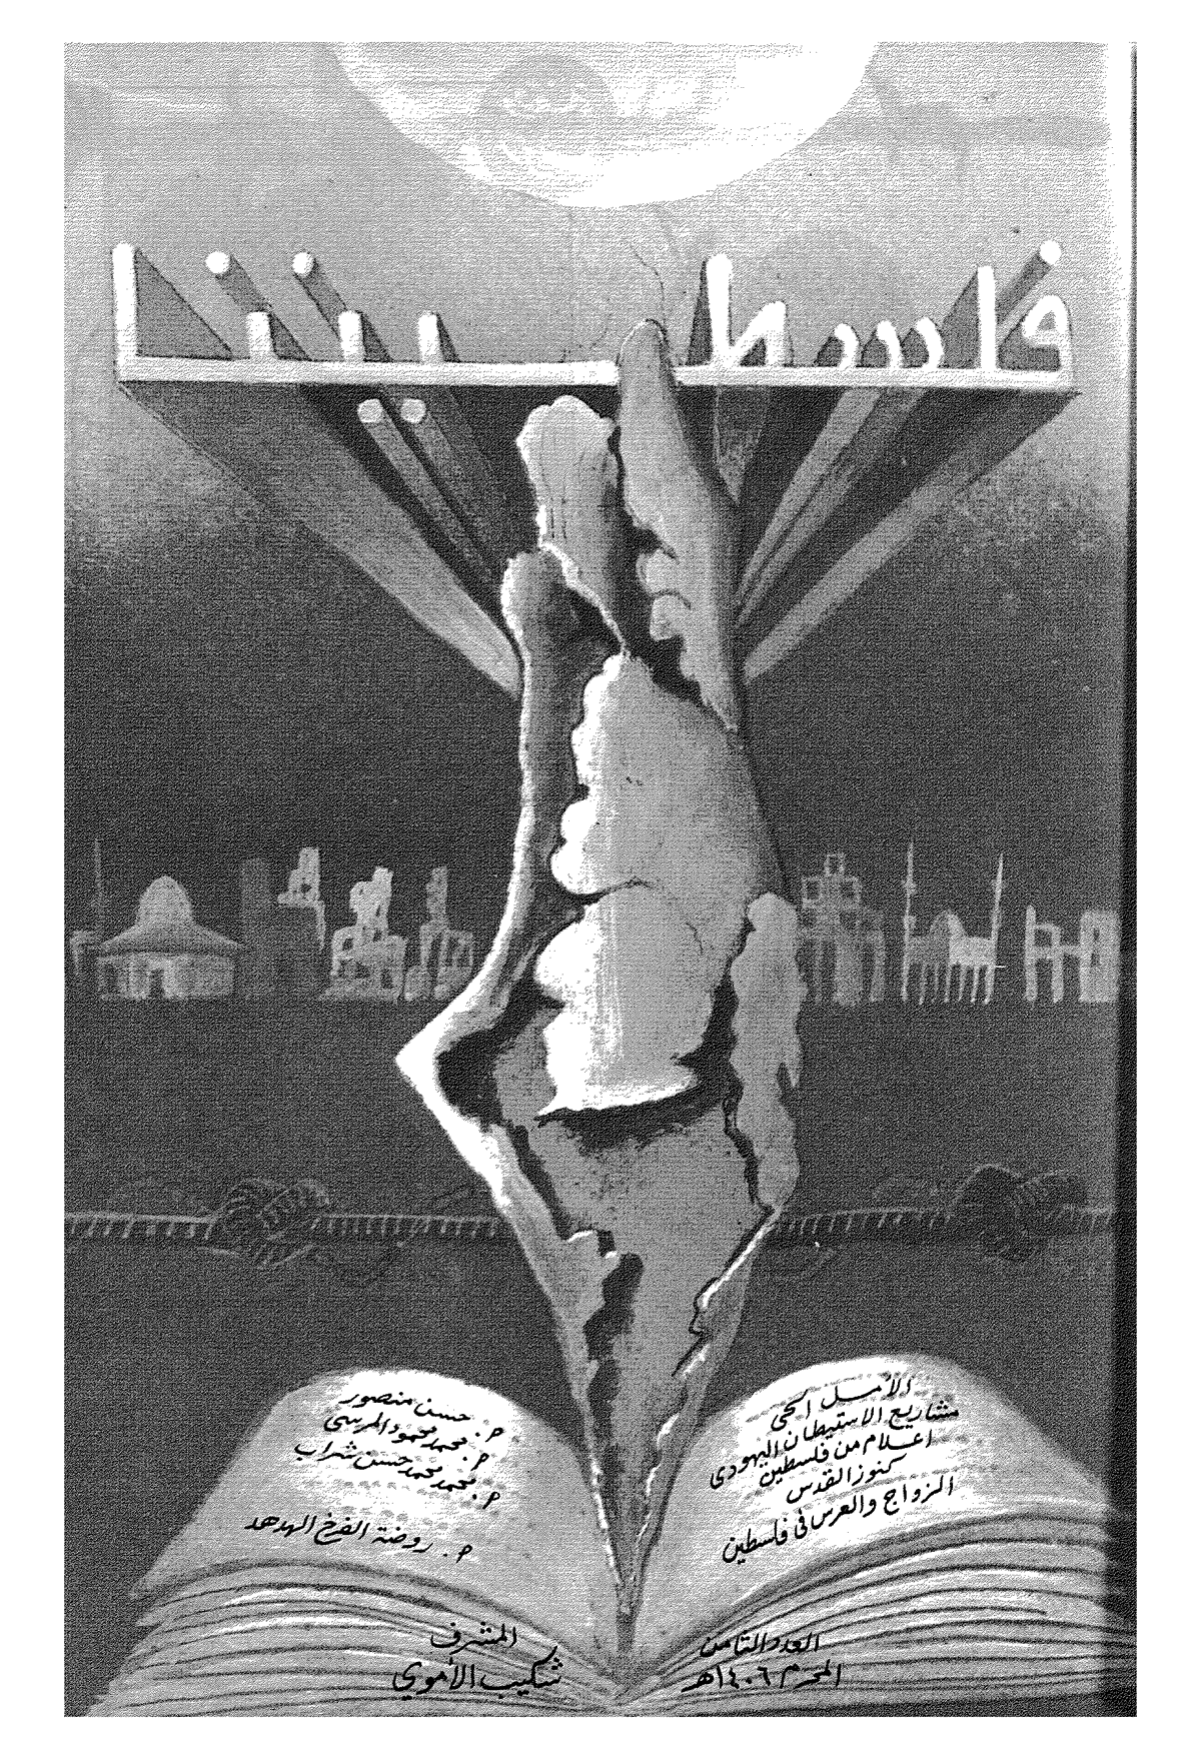 فلسطيننا
الأمل الحي
مشاريع الاستيطان اليهودي
اعلام من فلسطين
كنوز القدس
الزواج والعرس في فلسطين
م. حسن منصور
م. محمد محمود المرسى
م. محمد محمد حسن شراب
م. روضة الفرخ الهدهد
العدد الثامن
المحرم ١٤٠٦هـ
المشرف
شكيب الأموي